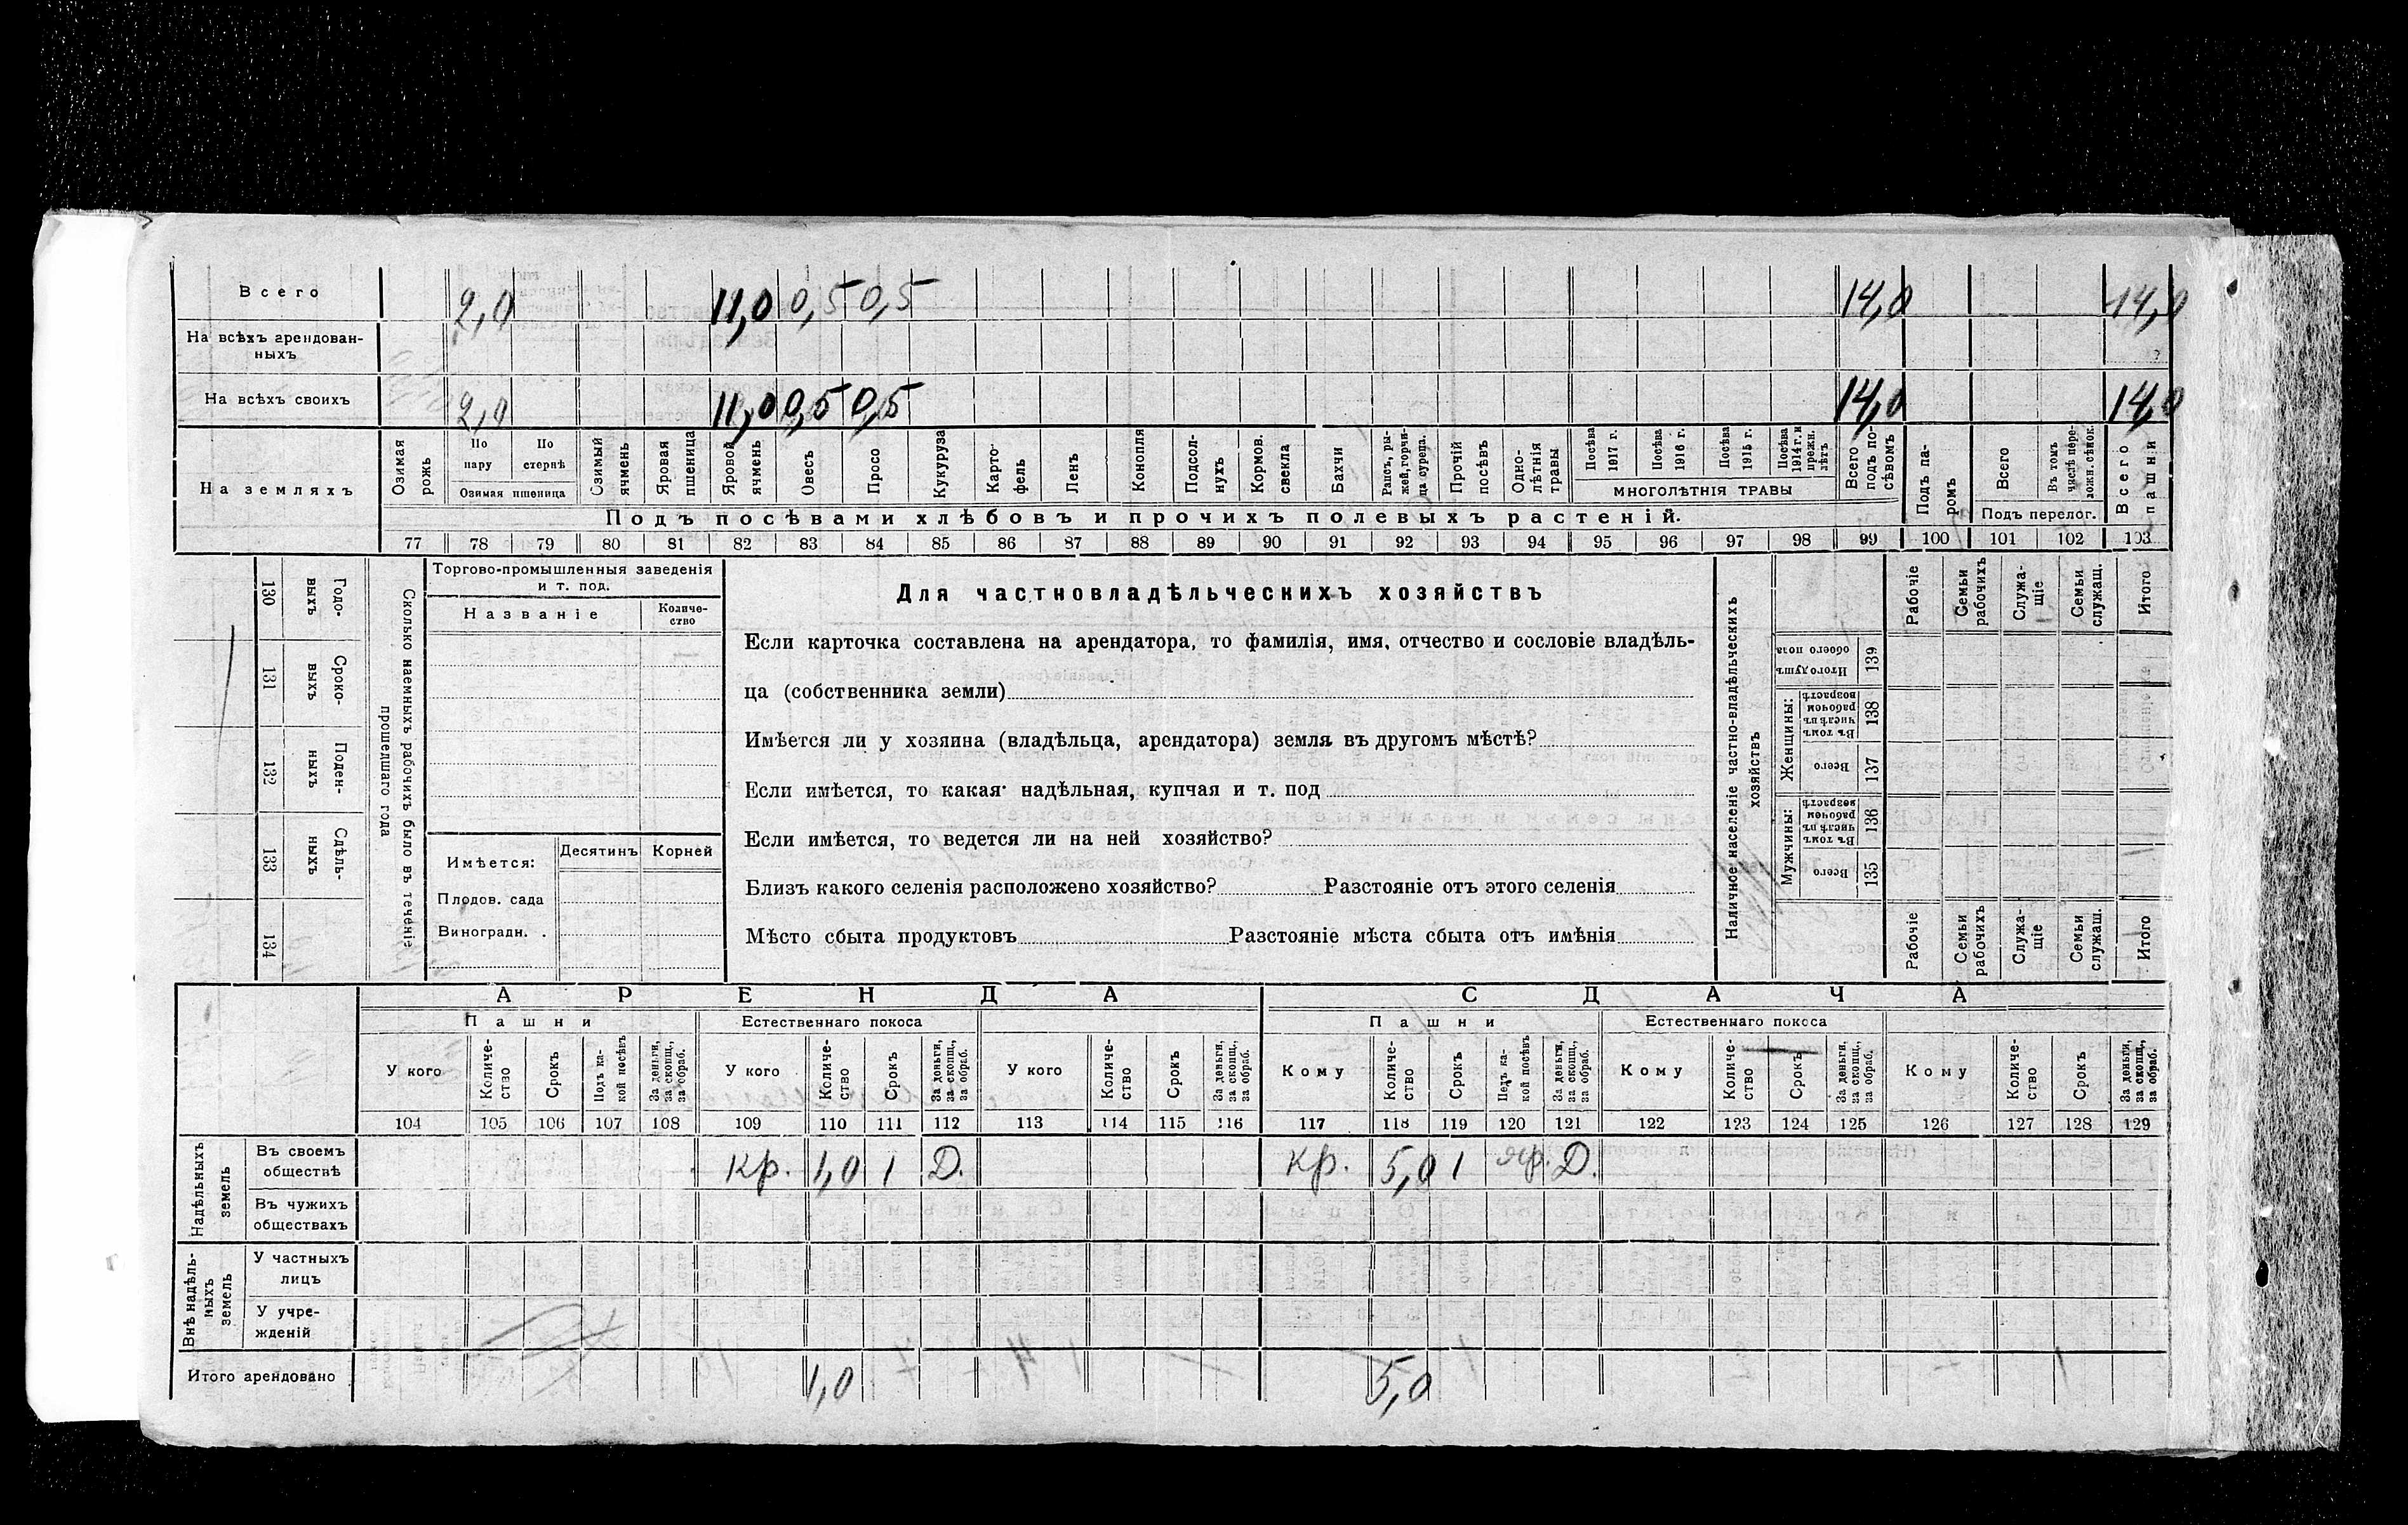 Всего 2,0 11,0 0,5 0,5 14,0 14,0
На всѣхъ арендован-
ныхъ
На всѣхъ своихъ 2,0 11,0 0,5 0,5 14,0 14,0
На земляхъ
Озимая рожь
По пару
По стернѣ
Озимая пшеница
Озимый ячмень
Яровая пшеница
Яровой ячмень
Овесъ
Просо
Кукуруза
Карто-
фель
Ленъ
Конопля
Подсол-
нухъ
Кормов. свекла
Бахчи
Рапсъ, ры-
жей, горчи-
ца сурепа.
Прочій посѣвъ
Одно-
лѣтнія травы
Посѣва 1917 г.
Посѣва 1916 г.
Посѣва 1915 г.
Посѣва 1914 г. и прежн. лѣтъ
МНОГОЛѢТНІЯ ТРАВЫ
Всего подъ по-
сѣвомъ
Подъ па-
ромъ
Всего
Въ томъ числѣ пере-
ложн. сѣнок.
Подъ перелог.
Всего пашни
Подъ посѣвами хлѣбовъ и прочихъ полевыхъ растеній.
77 78 79 80 81 82 83 84 85 86 87 88 89 90 91 92 93 94 95 96 97 98 99 100 101 102 103
130 Годо-
выхъ
131 Сроко-
выхъ
132 Поден-
ныхъ
133 Сдѣль-
ныхъ
134
Сколько наемныхъ рабочихъ было въ теченіе
прошедшаго года
Торгово-промышленныя заведенія
и т. под.
Названіе
Количе-
ство
Имѣется: Десятинъ Корней
Плодов. сада
Виноградн. .
Для частновладѣльческихъ хозяйствъ
Если карточка составлена на арендатора, то фамилія, имя, отчество и сословіе владѣль-
ца (собственника земли)
Имѣется ли у хозяина (владѣльца, арендатора) земля въ другомъ мѣстѣ?
Если имѣется, то какая надѣльная, купчая и т. под
Если имѣется, то ведется ли на ней хозяйство?
Близъ какого селенія расположено хозяйство? Разстояніе отъ этого селенія
Мѣсто сбыта продуктовъ Разстояніе мѣста сбыта отъ имѣнія
Наличное населеніе частно-владѣльческихъ
хозяйствъ
Рабочіе
Семьи рабочихъ
Служа-
щіе
Семьи служащ.
Итого
Итого душъ обоего пола 139
Женщины:
Въ томъ числѣ въ рабочем возрастѣ 138
Всего 137
Мужчины:
Въ томъ числѣ въ рабочем возрастѣ 136
Всего 135
Рабочіе
Семьи рабочихъ
Служа-
щіе
Семьи служащ.
Итого
АРЕНДА СДАЧА
Пашни Естественнаго покоса Пашни Естественнаго покоса
У кого
Количе-
ство
Срокъ
Подъ ка-
кой посѣвъ
За деньги, за скопщ., за обраб.
У кого
Количе-
ство
Срокъ
За деньги, за скопщ., за обраб.
У кого
Количе-
ство
Срокъ
За деньги, за скопщ., за обраб.
Кому
Количе-
ство
Срокъ
Подъ ка-
кой посѣвъ
За деньги, за скопщ., за обраб.
Кому
Количе-
ство
Срокъ
За деньги, за скопщ., за обраб.
Кому
Количе-
ство
Срокъ
За деньги, за скопщ., за обраб.
104 105 106 107 108 109 110 111 112 113 114 115 116 117 118 119 120 121 122 123 124 125 126 127 128 129
Надѣльныхъ
земель
Въ своемъ
обществѣ
кр. 1,0 1 Д. кр. 5,0 1 яр. Д.
Въ чужихъ
обществахъ
Внѣ надѣль-
ныхъ
земель
У частныхъ
лицъ
У учре-
жденій
Итого арендовано 1,0 5,0